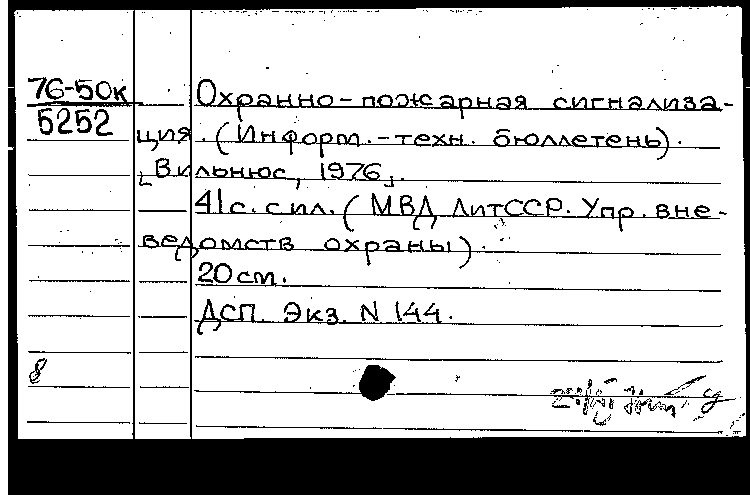 76-50к
5252
Охранно-пожарная сигнализа-
ция. (Информ.-техн. бюллетень).
[Вильнюс, 1976].
41с. с ил. (МВД ЛитССР. Упр. вне-
ведомств охраны).
20 см.
Дсп. Экз. N 144.
8